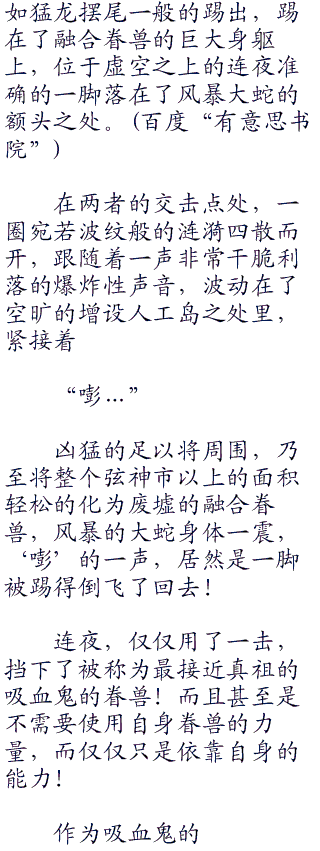 如猛龙摆尾一般的踢出，踢
在了融合眷兽的巨大身躯
上，位于虚空之上的连夜准
确的一脚落在了风暴大蛇的
额头之处。(百度“有意思书
院”)
在两者的交击点处，一
圈宛若波纹般的涟漪四散而
开，跟随着一声非常干脆利
落的爆炸性声音，波动在了
空旷的增设人工岛之处里，
紧接着
“嘭…”
凶猛的足以将周围，乃
至将整个弦神市以上的面积
轻松的化为废墟的融合眷
兽，风暴的大蛇身体一震，
‘嘭’的一声，居然是一脚
被踢得倒飞了回去！
连夜，仅仅用了一击，
挡下了被称为最接近真祖的
吸血鬼的眷兽！而且甚至是
不需要使用自身眷兽的力
量，而仅仅只是依靠自身的
能力！
作为吸血鬼的